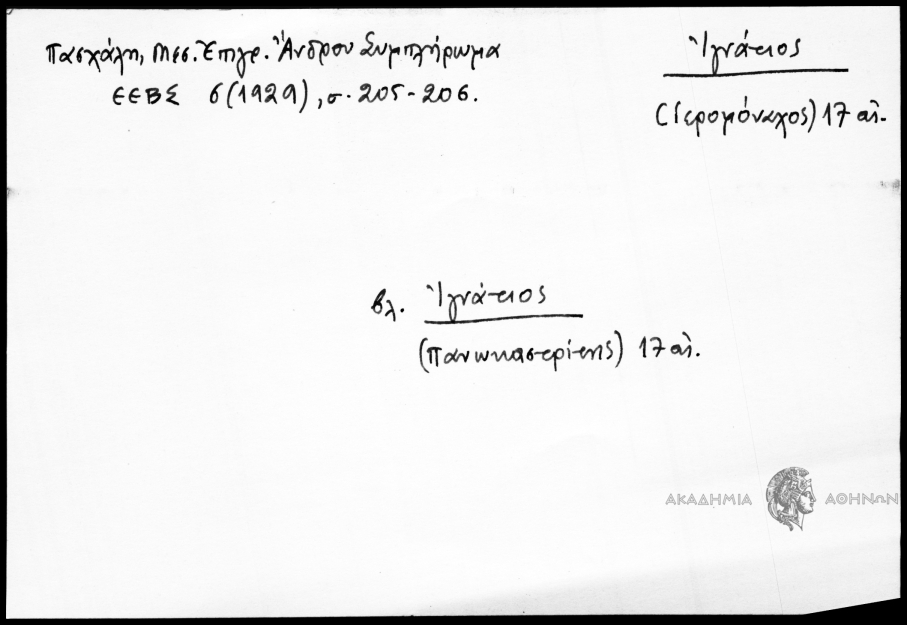 Πασχάλη, Μεσ. Ἐπιγρ. Ἄνδρου Συμπλήρωμα
ΕΕΒΣ 6 (1929), σ. 205-206.
Ἰγνάτιος
(Ἱερομόναχος) 17 αἰ.
βλ. Ἰγνάτιος
(Πανωκαστρίτης) 17 αἰ.
ΑΚΑΔΗΜΙΑ ΑΘΗΝΩΝ